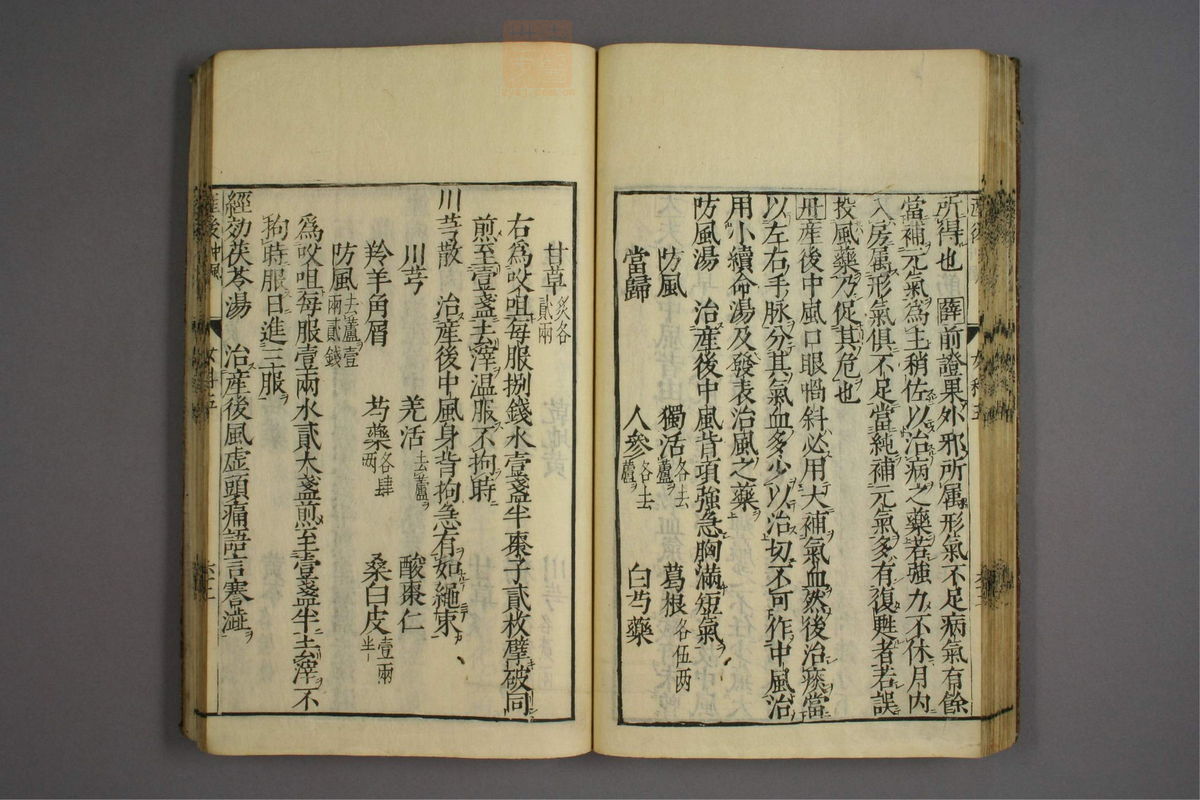 所得也 薛前證果外邪所属形氣不足病氣有餘
當補元氣爲主稍佐以治病之藥若強力不休月内
入房属形氣俱不足當純補元氣多有復甦者若誤
投風藥乃促其危也
丹産後中風口眼喎斜必用大補氣血然後治痰當
以左右手脉分其氣血多少以治切不可作中風治
用小續命湯及發表治風之藥
防風湯 治産後中風背項強急胸滿短氣
防風 獨活各去蘆 葛根各伍两
當歸 人參各去蘆 白芍藥
甘草炙各貳兩
右爲㕮咀每服捌錢水壹盞半棗子貳枚擘破同
煎至壹盞去滓温服不拘時
川芎散 治産後中風身背拘急有如繩束
川芎 羌活去蘆 酸棗仁
羚羊角屑 芍藥各肆两 桑白皮壹兩半
防風去蘆壹兩貳錢
爲㕮咀每服壹兩水貳大盞煎至壹盞半去滓不
拘時服日進三服
經効茯苓湯 治産後風虚頭痛語言蹇澁
産後中風